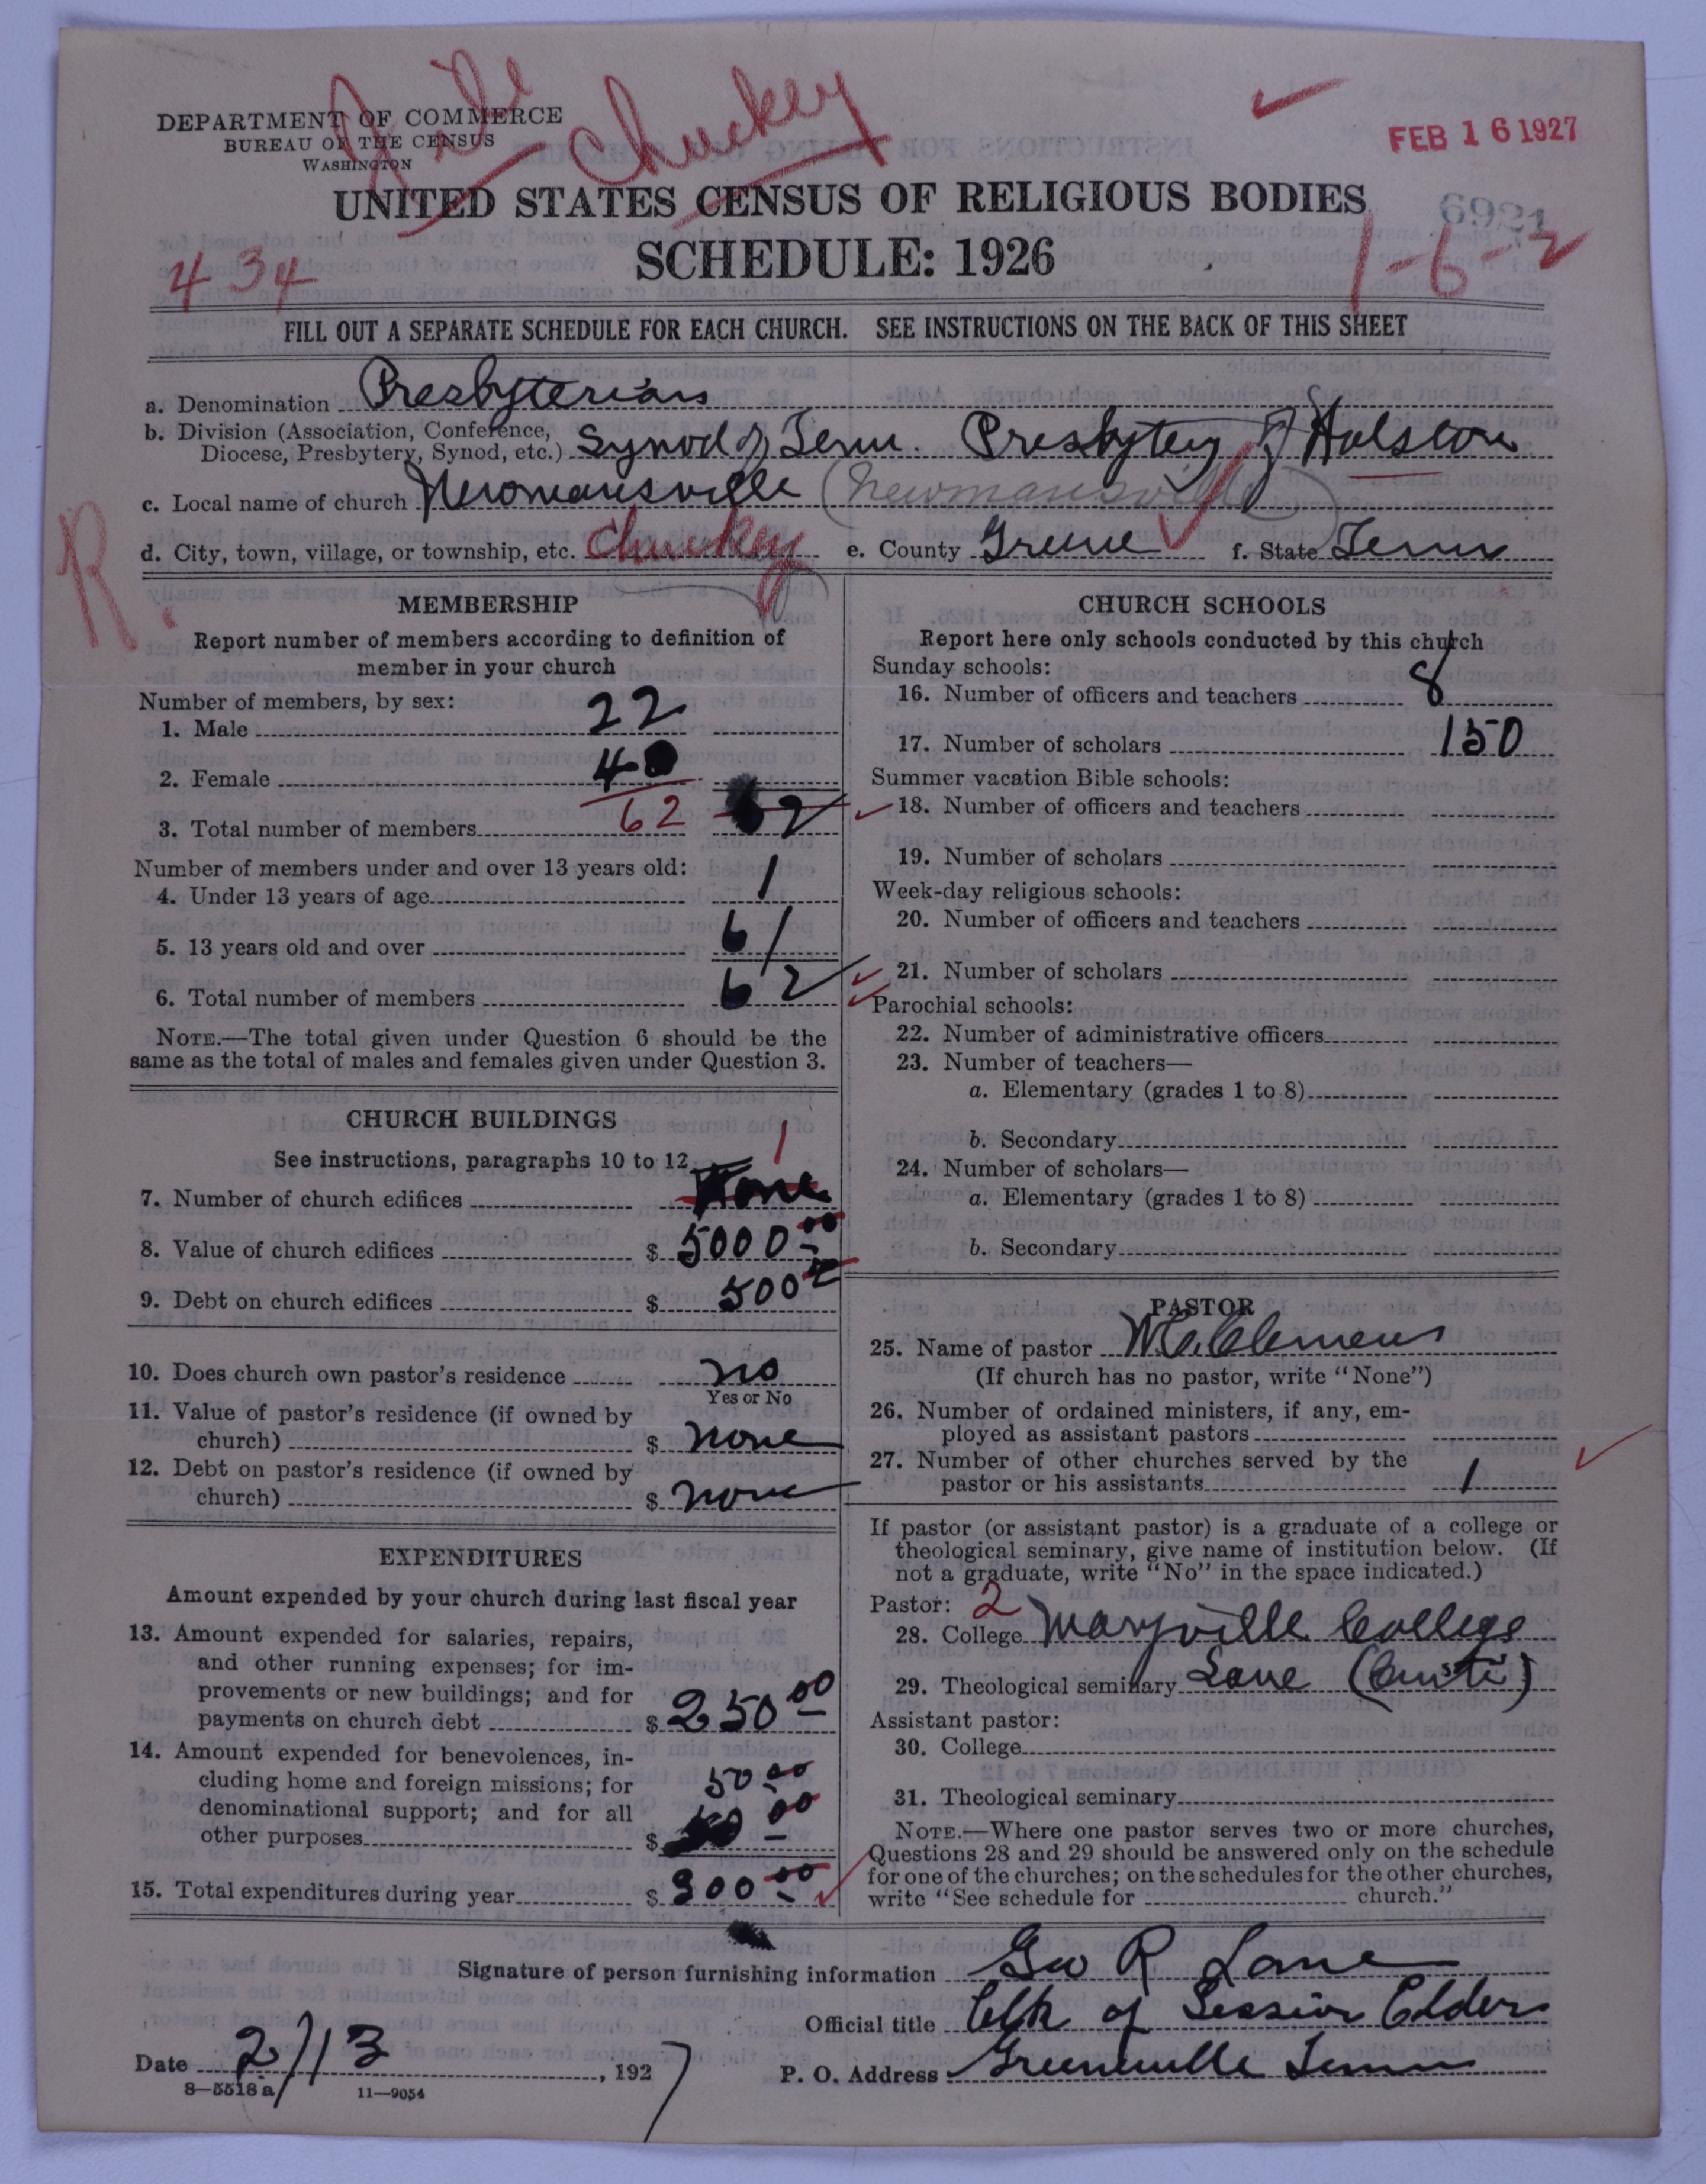 Chuckey
DEPARTMENT OF COMMERCE
BUREAU OF THE CENSUS
WASHINGTON
FEB 16 1927
6921
UNITED STATES CENSUS OF RELIGIOUS BODIES
1-6-2
434
SCHEDULE: 1926
FILL OUT A SEPARATE SCHEDULE FOR EACH CHURCH. SEE INSTRUCTIONS ON THE BACK OF THIS SHEET
a. Denomination Presbyterian
b. Division (Association, Conference, Diocese, Presbytery, Synod, etc.) Synod of Tenn. Presbytery of Holston
c. Local name of church Newmansville (Newmansville)
d. City, town, village, or township, etc. Chuckey e. County Greene f. State Tenn
R.
MEMBERSHIP
Report number of members according to definition of
member in your church
Number of members, by sex:
1. Male 22
2. Female 40
3. Total number of members 62 62
Number of members under and over 13 years old:
4. Under 13 years of age 1
5. 13 years old and over 61
6. Total number of members 62
NOTE.—The total given under Question 6 should be the
same as the total of males and females given under Question 3.
CHURCH BUILDINGS
See instructions, paragraphs 10 to 12
1
7. Number of church edifices None
8. Value of church edifices $ 5000.00
9. Debt on church edifices $ 500
10. Does church own pastor's residence no
Yes or No
11. Value of pastor's residence (if owned by
church) $ none
12. Debt on pastor's residence (if owned by
church) $ none
EXPENDITURES
Amount expended by your church during last fiscal year
13. Amount expended for salaries, repairs,
and other running expenses; for im-
provements or new buildings; and for
payments on church debt $ 250.00
14. Amount expended for benevolences, in-
cluding home and foreign missions; for 50.00
denominational support; and for all
other purposes $ 50 00
15. Total expenditures during year $ 300.00
CHURCH SCHOOLS
Report here only schools conducted by this church
Sunday schools:
16. Number of officers and teachers 8
17. Number of scholars 150
Summer vacation Bible schools:
18. Number of officers and teachers
19. Number of scholars
Week-day religious schools:
20. Number of officers and teachers
21. Number of scholars
Parochial schools:
22. Number of administrative officers
23. Number of teachers—
a. Elementary (grades 1 to 8)
b. Secondary
24. Number of scholars—
a. Elementary (grades 1 to 8)
b. Secondary
PASTOR
25. Name of pastor W. C. Clemens
(If church has no pastor, write "None")
26. Number of ordained ministers, if any, em-
ployed as assistant pastors
27. Number of other churches served by the
pastor or his assistants 1
If pastor (or assistant pastor) is a graduate of a college or
theological seminary, give name of institution below. (If
not a graduate, write "No" in the space indicated.)
Pastor: 2
28. College Maryville College
29. Theological seminary Lane
Assistant pastor:
30. College
31. Theological seminary
NOTE.—Where one pastor serves two or more churches,
Questions 28 and 29 should be answered only on the schedule
for one of the churches; on the schedules for the other churches,
write "See schedule for church."
Signature of person furnishing information Geo R Lane
Official title Clk of Session Elder
Date 2/13, 1927 P. O. Address Greeneville Tenn
8—5518a 11—9054